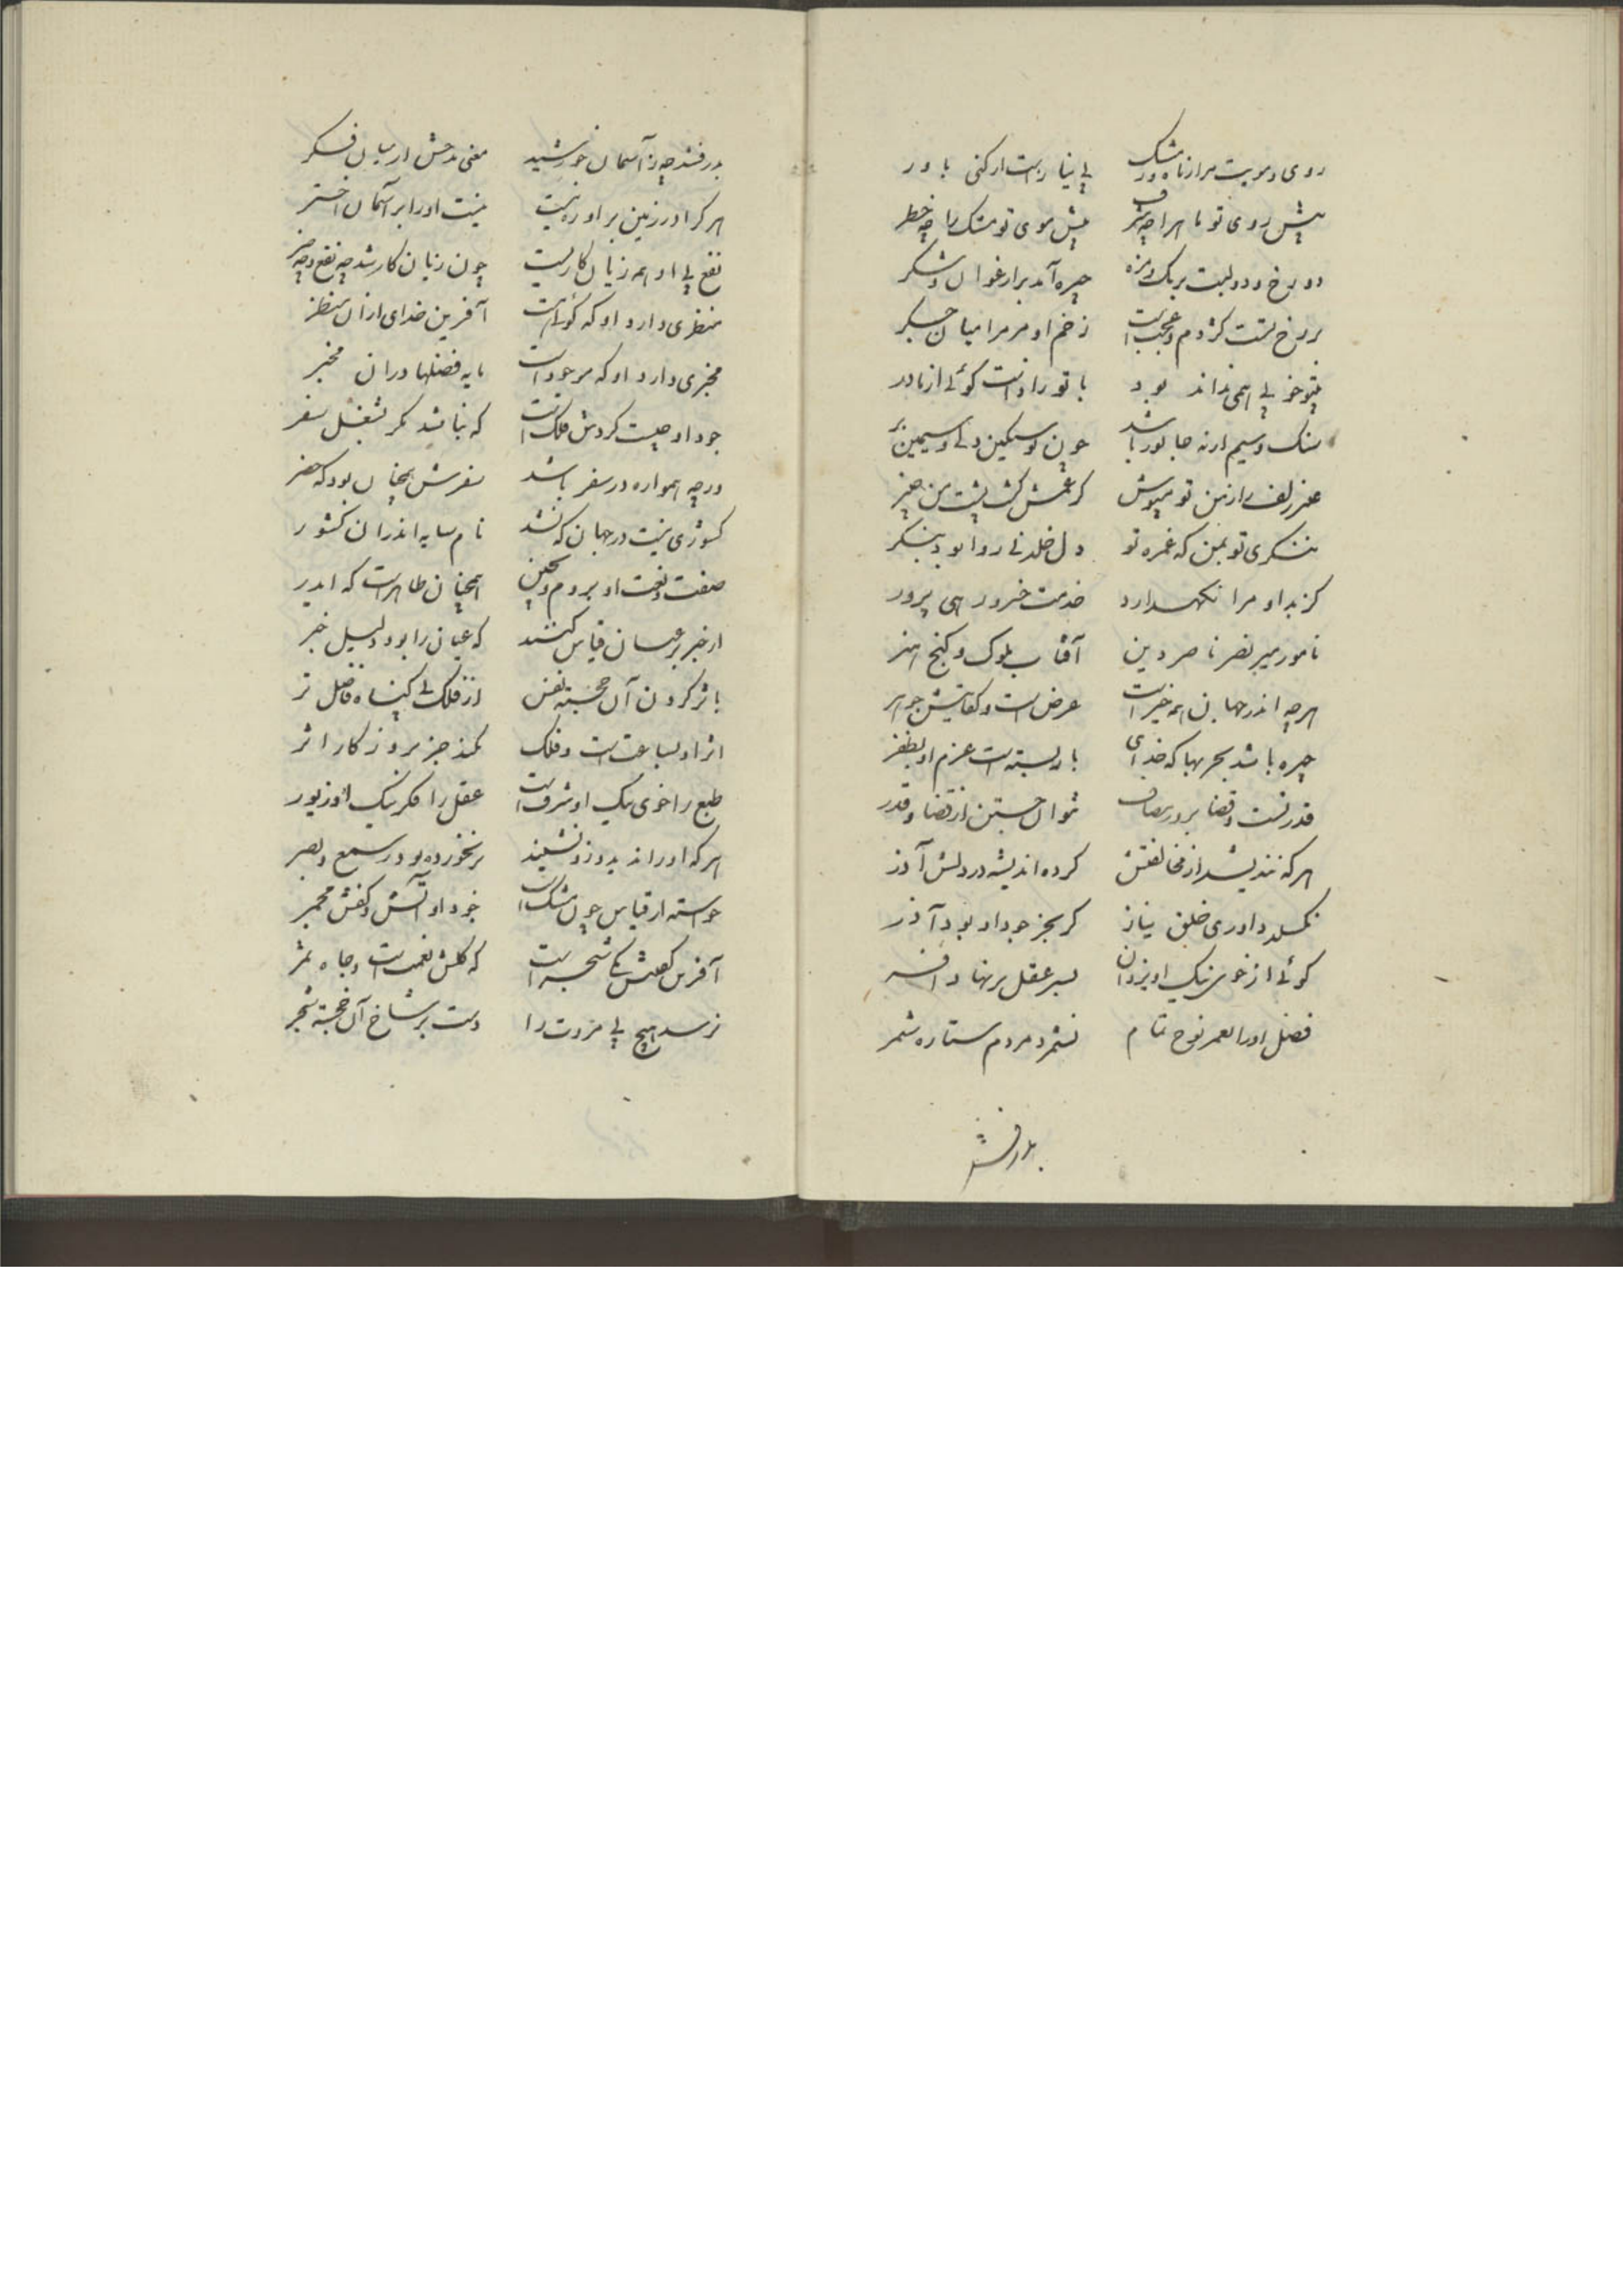 روی و مویت مرا ز ماه و ز مشک بی نیاز است ار کنی باور
پیش روی تو ماه را چه شرف پیش موی تو مشک را چه خطر
دو رخ و دو لبت برنک و مزه چیره آمد بر ارغوان و شکر
بر رخ تست کژدم و عجب است زخم او مر مرا میان جکر
بتو خوبی همی نداند بود با تو زاد است کوئی از مادر
سنک و سیم ار نه جانور باشد چون تو سنکین دلی و سیمین بر
عنبر زلف را ز من تو مپوش کر غمش کشت پشت من چنبر
ننکری تو بمن که غمزه تو دل خلد نی روا بود بنکر
کز بد او مرا نکهدارد خدمت خسرو رهی پرور
نامور میر نصر ناصر دین آفتاب ملوک و کنج هنر
هرچه اندر جهان همه خیر است عرض است و کفایتش جوهر
چیره باشد بحربها که خدای باز بسته است عزم او بظفر
قدر تست و قضا بروز مصاف نتوان جستن از قضا و قدر
هر که نندیشد از مخالفتش کرده اندیشه در دلش آذر
نکسلد داوری خلق نیاز کر بجز جود او بود داور
کوئی از خوی نیک او یزدان بسر عقل بر نهاد افسر
فضل او را بعمر نوح تمام نشمرد مردم ستاره شمر
بدرفشد
بدرفشد چه ز آسمان خورشید معنی مدحش از میان فکر
هر کرا در زمین بر او ره نیست نیست او را بر آسمان اختر
نفع بی او همه زیان کاریست چون زیان کار شد چه نفع و چه ضر
منظری دارد او که کوئی هست آفرین خدای از آن منظر
مخبری دارد او که موجود است مایه فضلها در آن مخبر
جود او چیست کردش فلک است که نباشد مکر بشغل سفر
ورچه همواره در سفر باشد سفرش همچنان بود که حضر
کشوری نیست در جهان که نشد نام سایه اندر آن کشور
صفت و نعت او بروم و بچین همچنان ظاهر است که ایدر
از خبر بر عیان قیاس کنند که عیان را بود دلیل خبر
باثر کردن آن خجسته نفس از فلک بی کناه فاضل تر
اثر او بساعت است و فلک نکند جز بروزکار اثر
طبع را خوی نیک او شرف است عقل را فکر نیک او زیور
هر که او را ندید و زو نشنید برنخورده بود ز سمع و بصر
خواسته از قیاس چون مشک است جود او آتش و کفش مجمر
آفرین کفش یکی شجر است که کلش نعمت است و جاه ثمر
نرسد هیچ بی مروت را دست بر شاخ آن خجسته شجر